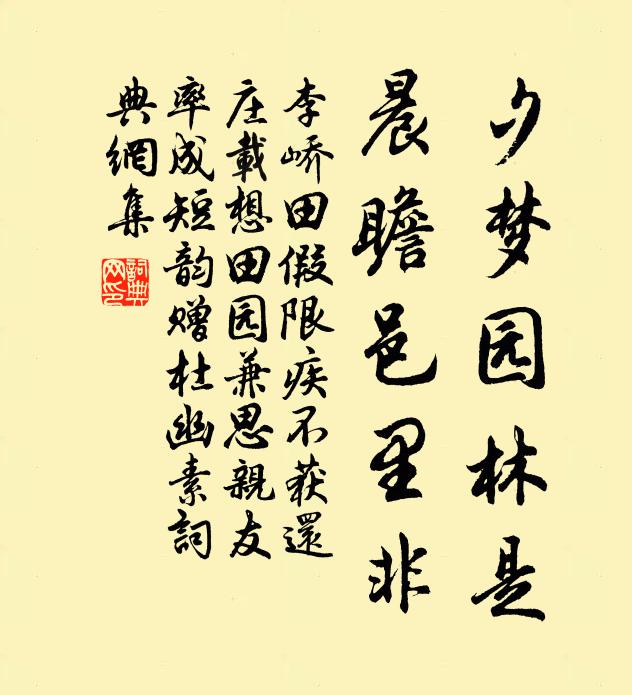 夕梦园林是
晨瞻邑里非
李峤田假限疾不获還
庄載想田园兼思親友
率成短韵赠杜幽素詞
典網集
詞典
网印